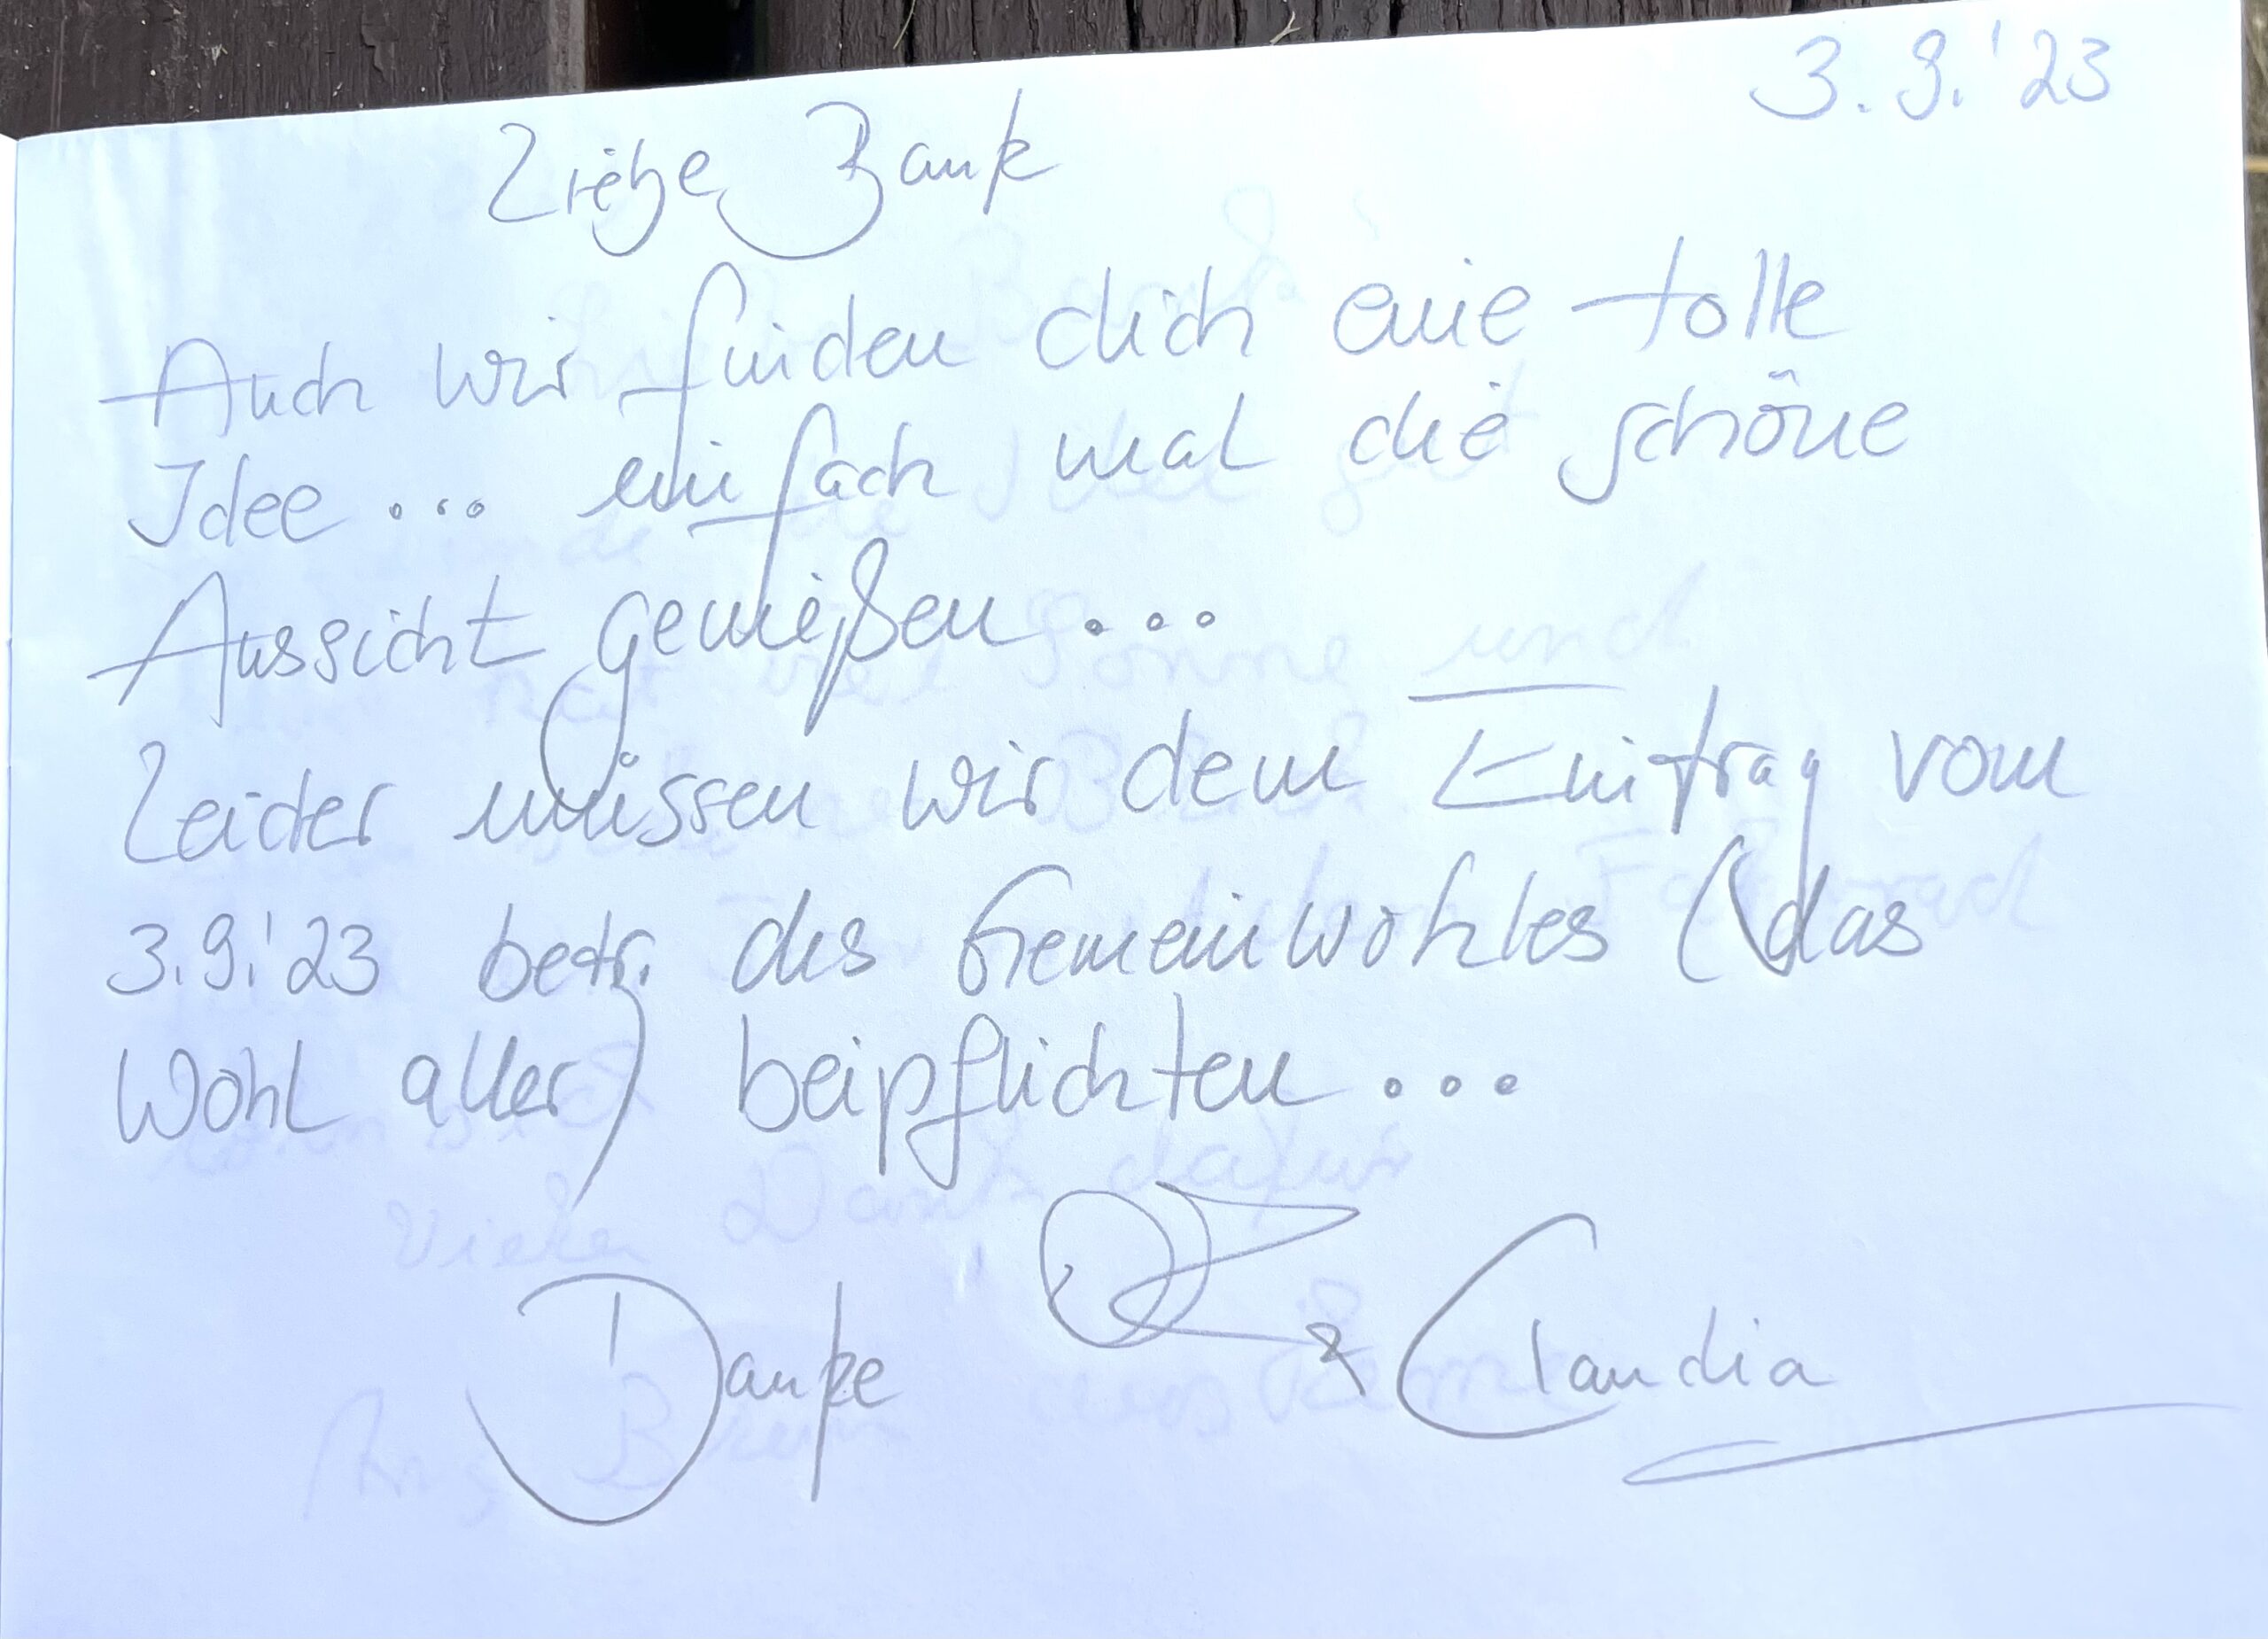 3.9.'23
Liebe Bank
Auch wir finden dich eine tolle
Idee ... einfach mal die schöne
Aussicht genießen ...
Leider müssen wir dem Eintrag vom
3.9.'23 betr. des Gemeinwohles (das
Wohl aller) beipflichten ...
Danke & Claudia